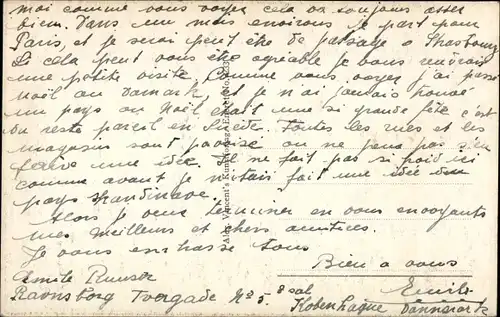 moi comme vous voyer cela va toujours asser
bien. Dans un mois environs je part pour
Paris, et je serai peut être de passage a Strasbourg
Si cela peut vous être agréable je vous rendrai
une petite visite. Comme vous voyer j'ai passé
Noël au Danark et je n'ai jamais trouvé
un pays ou Noël était une si grande fête c'est
du reste pareil en Suède. Toutes les rues et les
magasins sont pavoisé on ne peut pas s'en
faire une idée. Il ne fait pas si froid ici
comme avant je m'étais fait une idée du
pays skandinave.
Alors je veux terminer en vous envoyants
mes meilleurs et chers amitiées.
Je vous embrasse tous
Bien a vous
Emile
Emile Runser
Ravnsborg Tvergade No 5. 3 sal
Kobenhague Dannemark
Alex. Vincent's Kunstforlag, Eneret No.